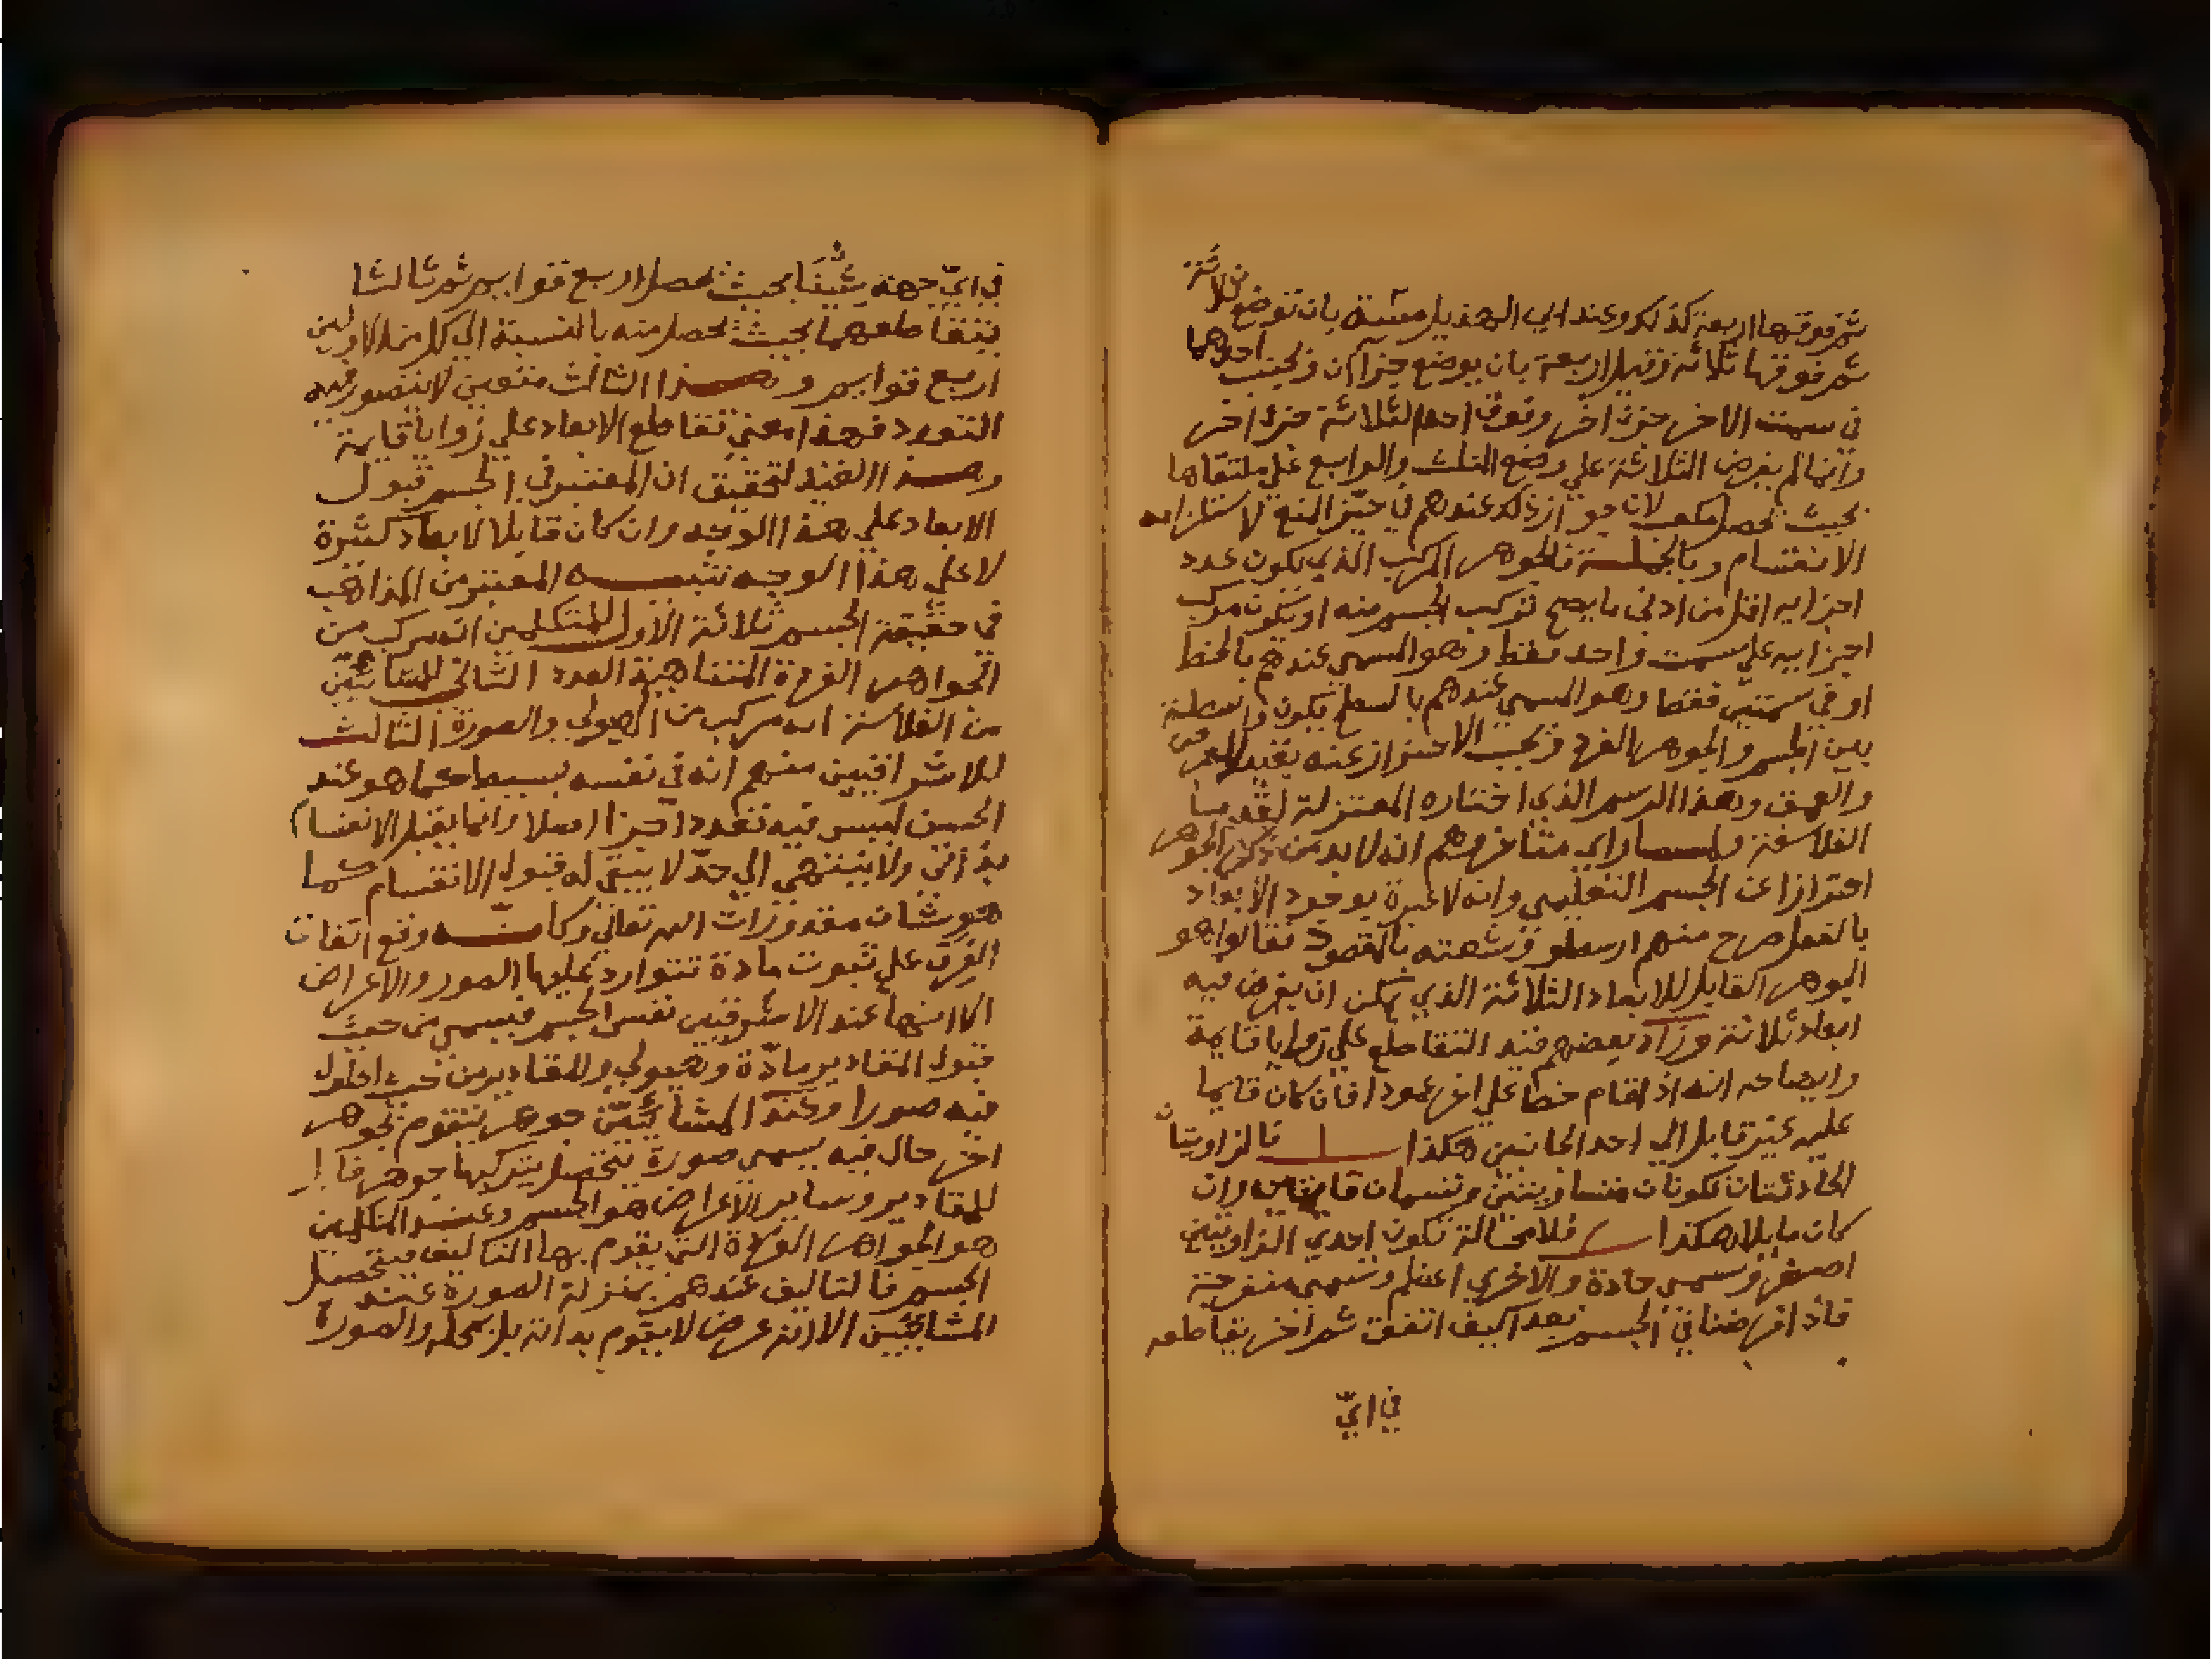 ثم فوقها اربعة كذلك وعند ابي الهذيل ستة بان توضع ثلاثة
ثم فوقها ثلاثة وقيل اربعة بان يوضع جزآن وبجنب احدهما
في سمت الاخر جزء اخر وفوق احد الثلاثة جزء اخر
وانما لم يفرض الثلاثة علي وضع المثلث والرابع علي ملتقاها
بحيث يحصل مكعب لان جواز ذلك عندهم في حيز المنع لاستلزامه
الانقسام وبالجملة فالجوهر المركب الذي يكون عدد
اجزايه اقل من ادني ما يصح تركب الجسم منه او يكون تركب
اجزايه علي سمت واحد فقط وهو المسمي عندهم بالخط
او في سمتين فقط وهو المسمي عندهم بالسطح يكون واسطة
بين الجسم والجوهر الفرد ويجب الاحتراز عنه بقيد العرض
والعمق وهذا الرسم الذي اختاره المعتزلة لقدما
الفلاسفة ولما راي متاخروهم انه لا بد من ذكر الجوهر
احترازا عن الجسم التعليمي وانه لا عبرة بوجود الابعاد
بالفعل صرح منهم ارسطو وشيعته بالمقصود فقالوا هو
الجوهر القابل للابعاد الثلاثة الذي يمكن ان يفرض فيه
ابعاد ثلاثة وزاد بعضهم قيد التقاطع علي زوايا قايمة
وايضاحه انه اذا قام خط علي اخر عمودا فان كان قايما
عليه غير قابل الي احد الجانبين هكذا فالزاويتان
الحادثتان تكونان متساويتين وتسميان قايمتين وان
كان مايلا هكذا فلا محالة تكون احدي الزاويتين
اصغر وتسمي حادة والاخري اعظم وتسمي منفرجة
فاذا فرضنا في الجسم بعدا كيف اتفق ثم اخر يقاطعه
في ايّ
في ايّ جهة شئنا بحيث يحصل اربع قوايم ثم ثالثا
يتقاطعهما بحيث يحصل منه بالنسبة الي كل من الاولين
اربع قوايم وهذا الثالث متعين لا يتصور فيه
التعدد فهذا معني تقاطع الابعاد علي زوايا قايمة
وهذا القيد لتحقيق ان المعتبر في الجسم قبول
الابعاد علي هذا الوجه وان كان قابلا لابعاد كثيرة
لا علي هذا الوجه تنبيه المعتبر من المذاهب
في حقيقة الجسم ثلاثة الاول للمتكلمين انه مركب من
الجواهر الفردة المتناهية العدد الثاني للمشائين
من الفلاسفة انه مركب من الهيولي والصورة الثالث
للاشراقيين منهم انه في نفسه بسيط كما هو عند
الحس ليس فيه تعدد اجزا اصلا وانما يقبل الانقسا)
بذاته ولا ينتهي الي حدّ لا يبقي له قبول الانقسام كما
هو شان مقدورات الله تعالي وكانه وقع اتفاق
الفرق علي ثبوت مادة تتوارد عليها الصور والاعراض
الا انها عند الاشرقيين نفس الجسم فيسمي من حيث
قبول المقادير مادّة وهيولي والمقادير من حيث الحلول
فيه صورا وعند المشائيّن جوهر يتقوم بجوهر
اخر حال فيه يسمي صورة يتحصل بتركبها جوهر قابل
للمقادير وساير الاعراض هو الجسم وعند المتكلمين
هو الجواهر الفردة التي يقوم بها التاليف فيتحصل
الجسم فالتاليف عندهم بمنزلة الصورة عند
المشائيين الا انه عرض لا يقوم بذاته بل بمحله والصورة